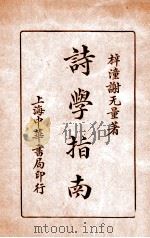 梓潼謝无量著
詩學指南
上海中華書局印行
mtoou.info